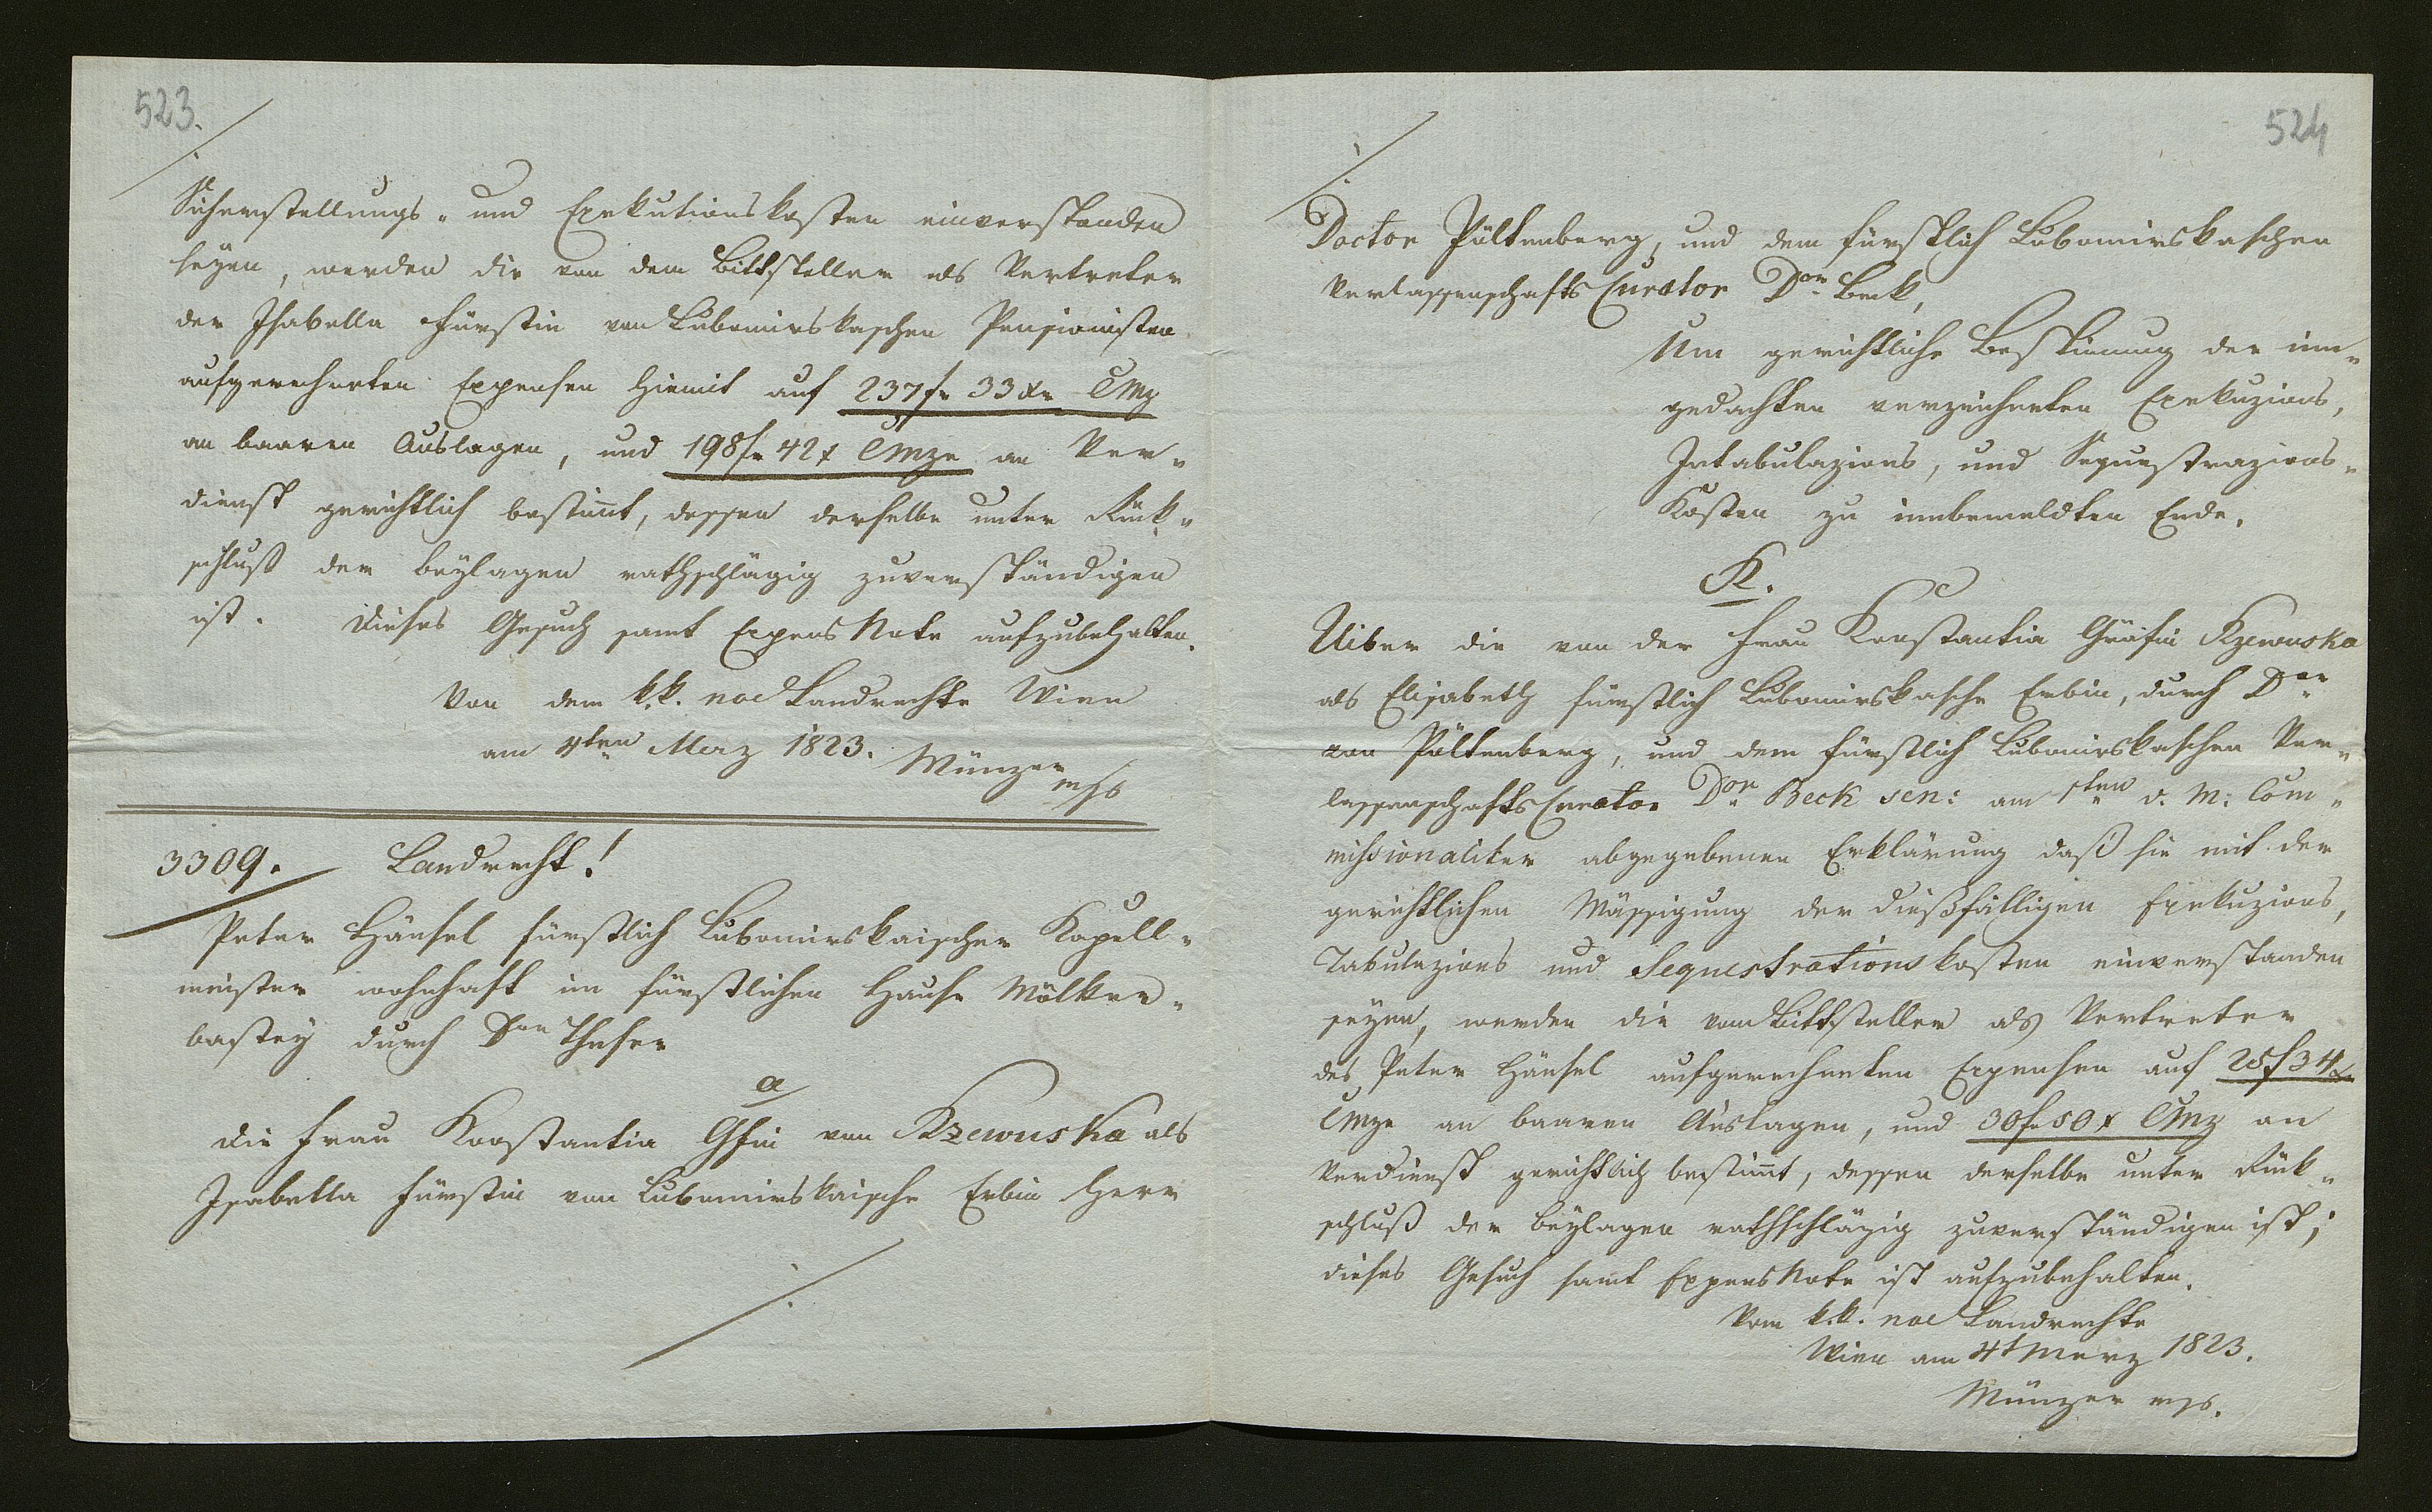 523.
Sicherstellungs- und Exekutionskosten einverstanden
seyen, werden die von dem Bittsteller als Vertreter
der Isabella Fürstin von Lubomirskaschen Pensionisten
aufgerechneten Expensen hiemit auf 237 fr 33 xr CMz
an baaren Auslagen, und 198 fr 42 x CMze an Ver-
dienst gerichtlich bestim̅t, dessen derselbe unter Rück-
schluß der Beylagen rathschlägig zuverständigen
ist. Dieses Gesuch samt Expens Note aufzubehalten.
Von dem k.k. noe Landrechte Wien
am 4ten Merz 1823. Münzer
mp
3309. Landrecht!
Peter Hänsel fürstlich Lubomirskaischer Kapell-
meister wohnhaft im fürstlichen Hause Mölker-
bastey durch Dor
a
die Frau Konstantia Gfin von Rzewuska als
Isabella Fürstin von Lubomirskaische Erbin Herr
./.
524
./.
Doctor Pöltenberg, und dem fürstlich Lubomirskaschen
Verlassenschafts Curator Dor Beck,
Um gerichtliche Bestim̅ung der inn-
gedachten verzeichneten Exekuzions,
Intabulazions, und Sequestrazions-
Kosten zu innbemeldten Ende.
R.
Uiber die von der Frau Konstantia Gräfin Rzewuska
als Elisabeth fürstlich Lubomirskasche Erbin, durch Dor
von Pöltenberg, und dem fürstlich Lubomirskaschen Ver-
lassenschafts Curator Dor Beck sen: am 1ten d. M. Com-
missionaliter abgegebenen Erklärung daß sie mit der
gerichtlichen Mässigung der dießfälligen Exekuzions,
Tabulazions und Sequestrations kosten einverstanden
seyen, werden die vom Bittsteller als Vertreter
des Peter Hänsel aufgerechneten Expensen auf 25 f 34 x
CMze an baaren Auslagen, und 30 fr 50 x CMz an
Verdienst gerichtlich bestim̅t, dessen derselbe unter Rück-
schluß der Beylagen rathschlägig zuverständigen ist;
dieses Gesuch samt Expens Note ist aufzubehalten.
Vom k.k. noe Landrechte
Wien am 4t Merz 1823.
Münzer mp.